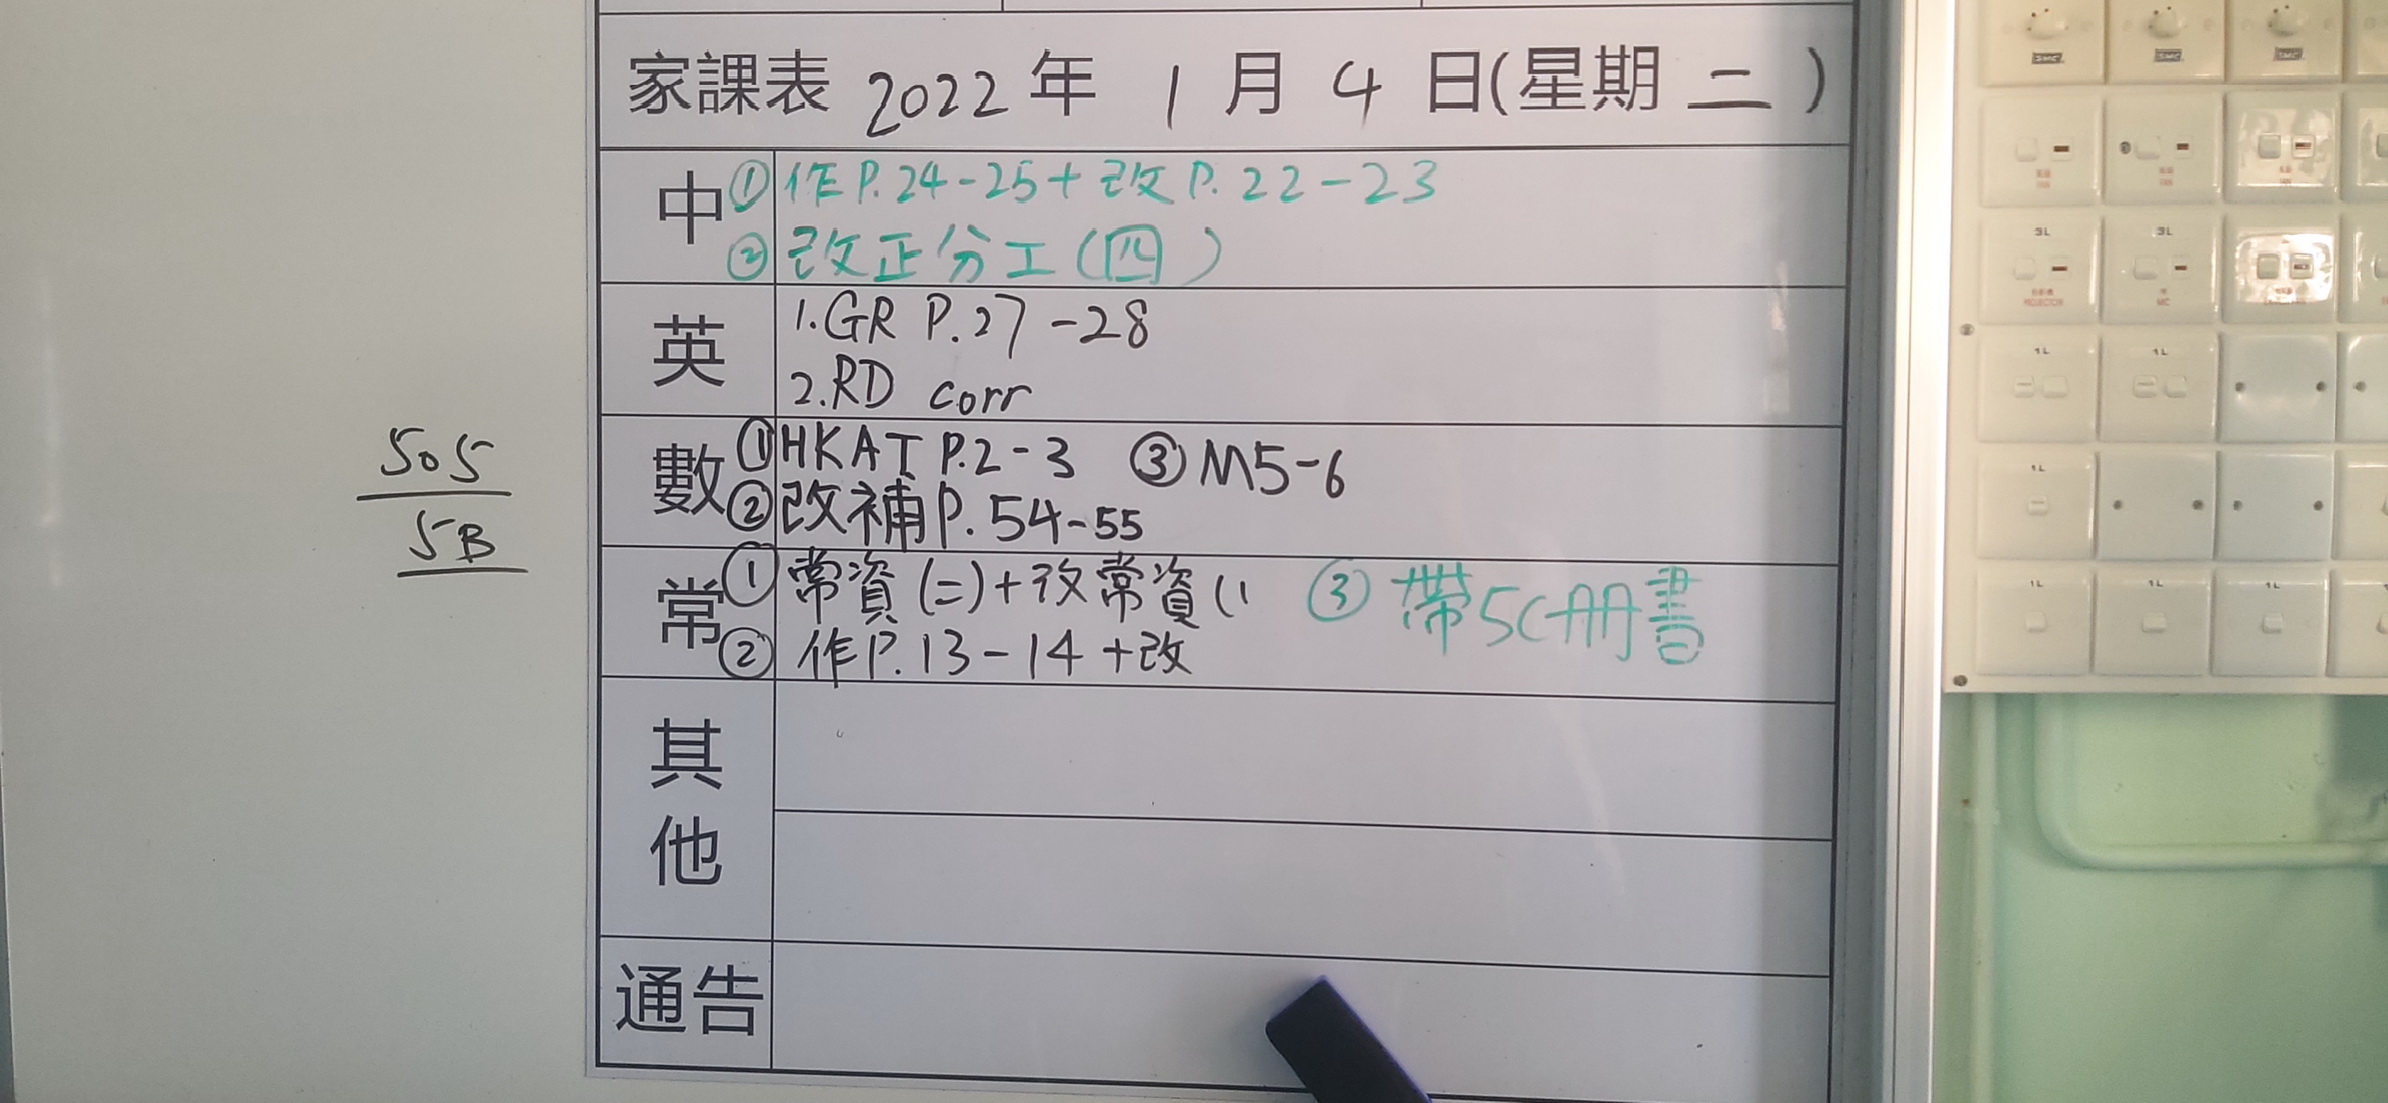 家課表 2022 年 1 月 4 日(星期 二 )
中 ① 作 P.24-25+改 P.22-23
② 改正分工(四)
英 1.GR P.27-28
2.RD corr
數 ① HKAT P.2-3 ③ M5-6
② 改補 P.54-55
常 ① 常資(二)+改常資( ③ 帶5C冊書
② 作 P.13-14+改
其他
通告
505
5B
SMC
SMC
SMC
FAN
FAN
FAN
3L
3L
PROJECTOR
MIC
1L
1L
1L
1L
1L
1L